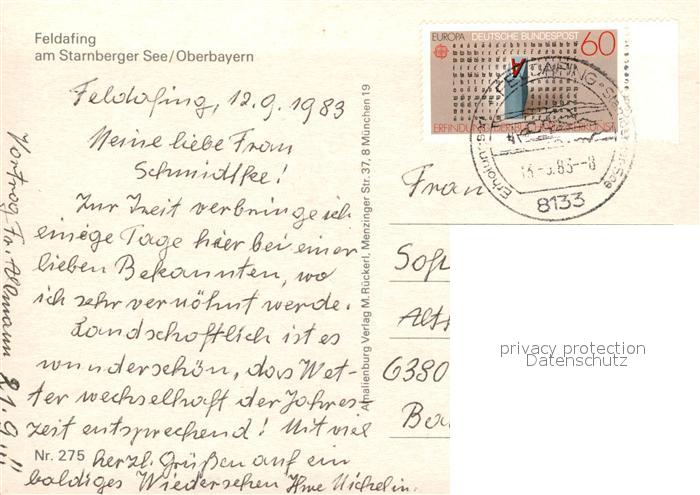 Feldafing
am Starnberger See/Oberbayern
EUROPA DEUTSCHE BUNDESPOST 60
8133
Feldafing, 12.9.1983
Meine liebe Frau
Schmidlke!
Zur Zeit verbringe ich
einige Tage hier bei einer
lieben Bekannten, wo
ich sehr verwöhnt werde.
Landschaftlich ist es
wunderschön, das Wet-
ter wechselhaft der Jahres-
zeit entsprechend! Mit viel
herzl. Grüßen auf ein
baldiges Wiedersehen Ihre
Nr. 275
Vortrag Fr. Allmann 21.9.!!!
Amalienburg Verlag M. Rückerl, Menzinger Str. 37, 8 München 19
Frau
6380
privacy protection
Datenschutz